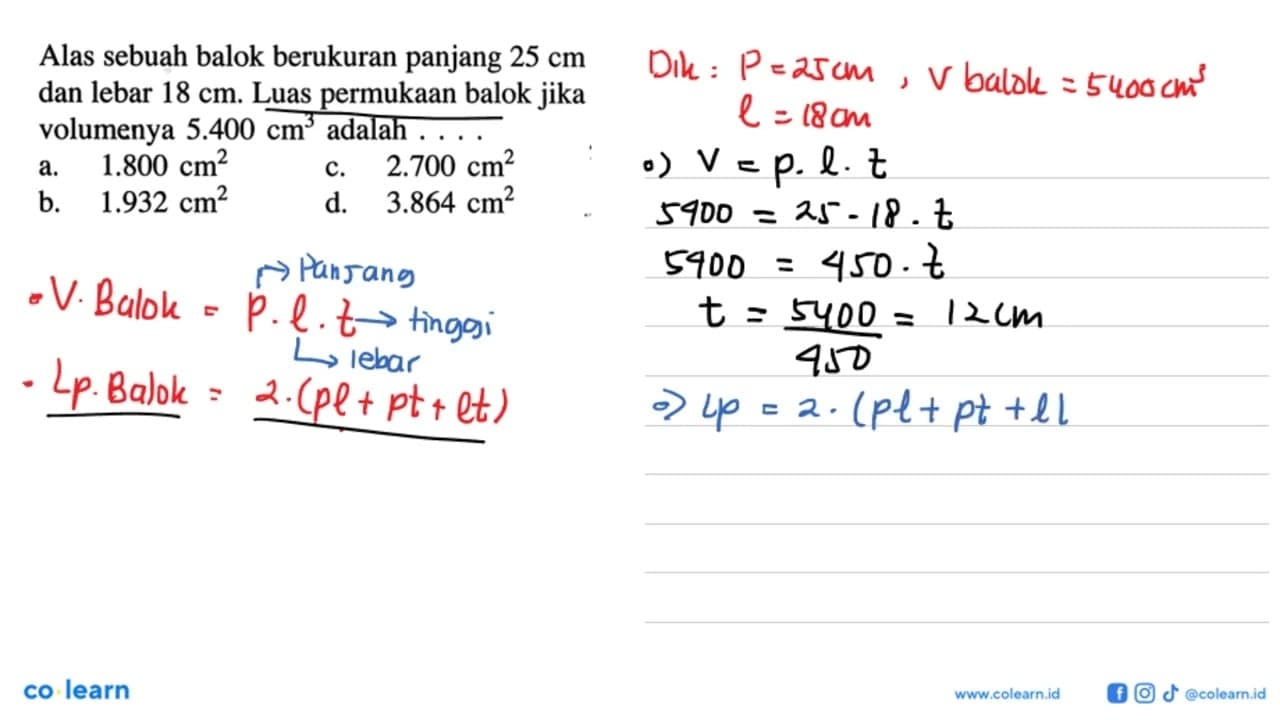 Alas sebuah balok berukuran panjang 25 cm
dan lebar 18 cm. Luas permukaan balok jika
volumenya 5.400 cm³ adalah . . . .
a. 1.800 cm² c. 2.700 cm²
b. 1.932 cm² d. 3.864 cm²
→ Panjang
• V. Balok = p. l. t → tinggi
↳ lebar
- Lp. Balok = 2. (pl + pt + lt)
Dik : P = 25 cm , V balok = 5400 cm³
l = 18 cm
•) V = p. l. t
5400 = 25 . 18 . t
5400 = 450 . t
t = 5400 = 12 cm
450
•) Lp = 2 . (pl + pt + ll
co learn
www.colearn.id @colearn.id